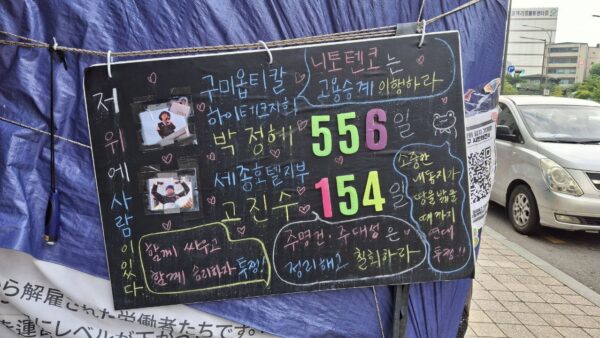 저 위에 사람이 있다
구미옵티칼
하이테크지회
박정혜
556일
니토덴코는
고용승계 이행하라
세종호텔지부
고진수
154일
소중한
내 동지가
땅을 밟을
때까지
연대
투쟁!!
함께 싸우고
함께 승리하자 투쟁!
주명건·주대성은
정리해고 철회하라
から解雇された労働者たちです。